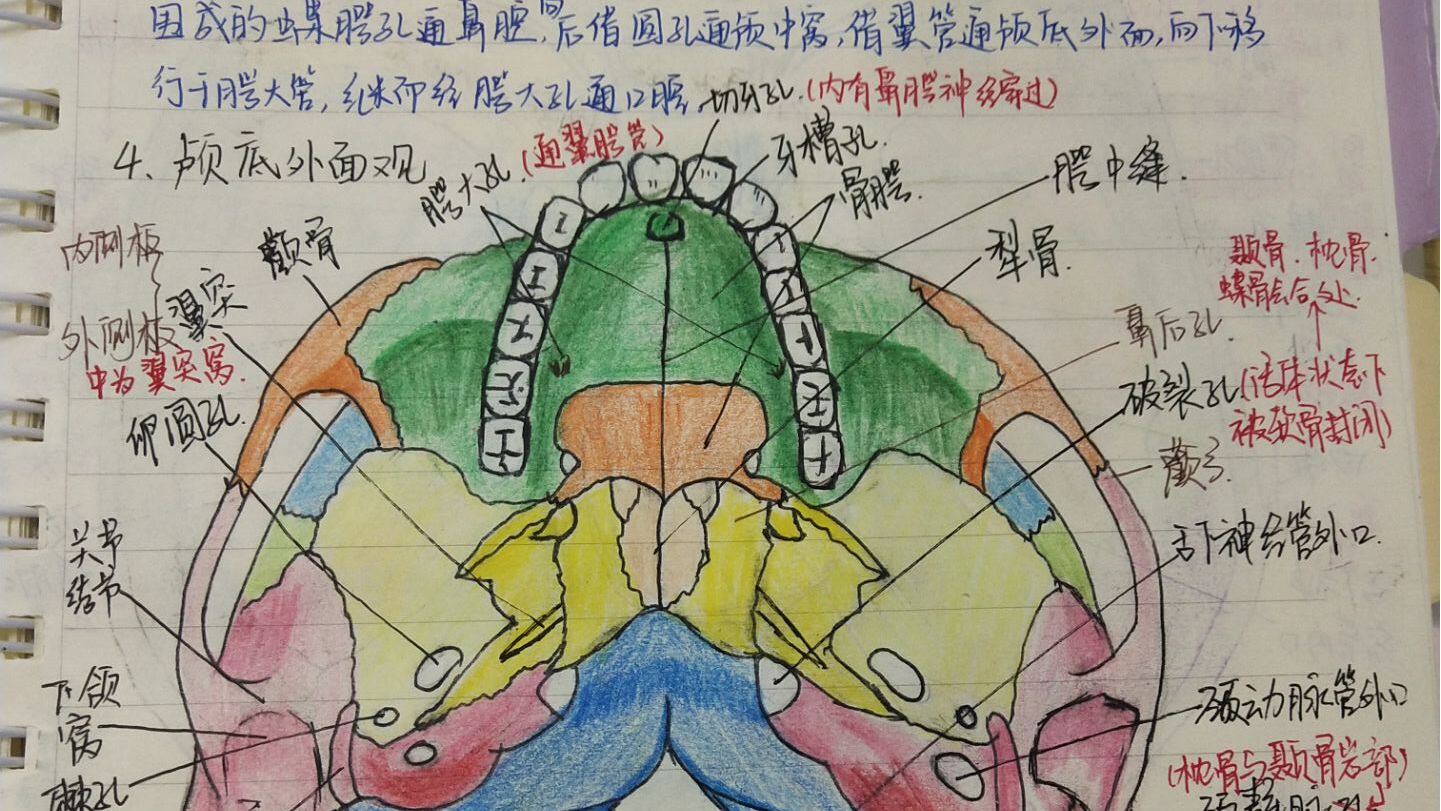 围成的蝶腭孔通鼻腔,向后借圆孔通颅中窝,借翼管通颅底外面,向下移
行于腭大管,继而经腭大孔通口腔.
切牙孔.(内有鼻腭神经穿过)
4、颅底外面观
腭大孔.(通翼腭管)
牙槽孔.
骨腭.
腭中缝.
内侧板
外侧板
翼突
中为翼突窝.
颧骨
犁骨.
颞骨.枕骨.
蝶骨会合处.
鼻后孔
破裂孔(活体状态下
被软骨封闭)
卵圆孔.
颧弓.
关节
结节
舌下神经管外口.
下颌
窝
颈动脉管外口
棘孔
(枕骨与颞骨岩部)
颈静脉孔